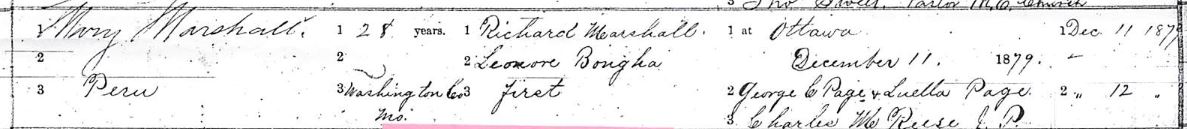 1 Mary Marshall. 1 28 years. 1 Richard Marshall. 1 at Ottawa 1 Dec 11 1879
2 2 2 Leonore Bongha December 11. 1879. "
3 Peru 3 Washington Co 3 first 2 George C Page & Luella Page. 2 " 12 "
Mo. 3 Charles M Reese J. P.